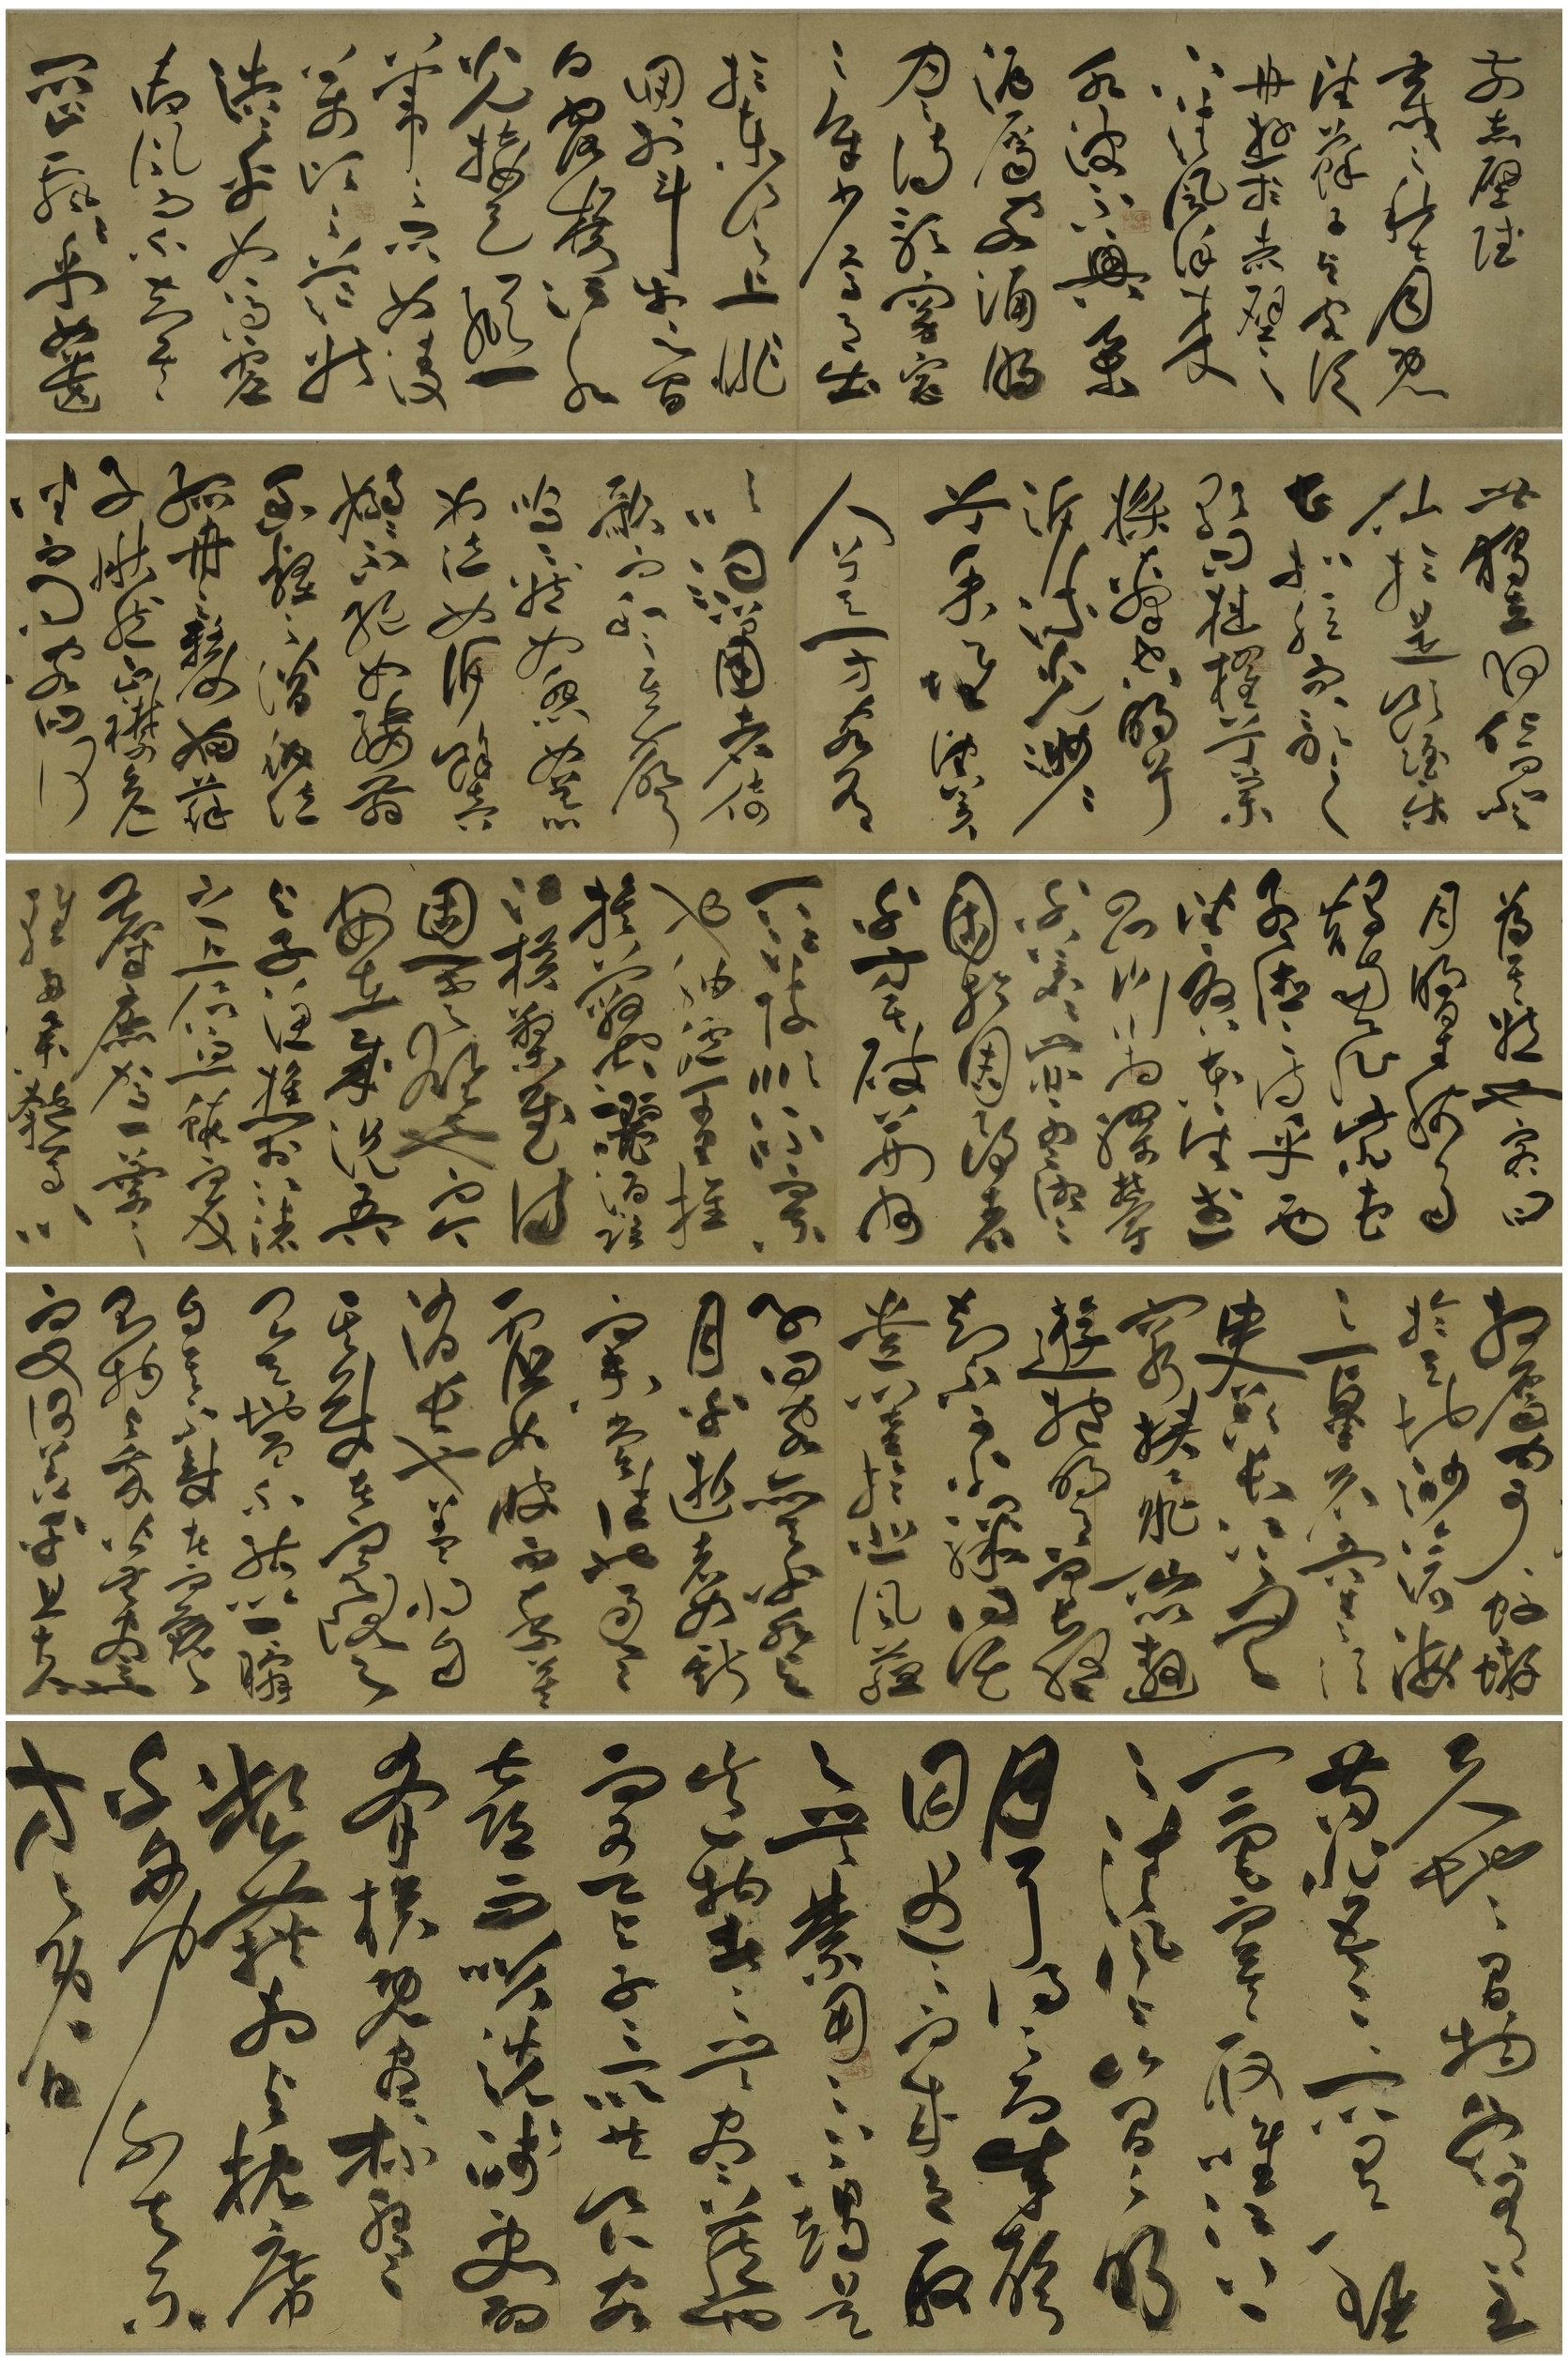 前赤壁賦
壬戌之秋七月既
望蘇子與客泛
舟遊於赤壁之
下清風徐來
水波不興舉
酒屬客誦明
月之詩歌窈窕
之章少焉月出
於東山之上徘
徊於斗牛之間
白露橫江水
光接天縱一
葦之所如凌
萬頃之茫然
浩浩乎如馮虛
御風而不知其
所止飄飄乎如遺
世獨立羽化而登
仙於是飲酒樂
甚扣舷而歌之
歌曰桂棹兮蘭
槳擊空明兮
泝流光渺渺
兮余懷望美
人兮天一方客有
吹洞簫者倚
歌而和之其聲
嗚嗚然如怨如慕
如泣如訴餘音
嫋嫋不絕如縷舞
幽壑之潛蛟泣
孤舟之嫠婦蘇
子愀然正襟危
坐而問客曰何
為其然也客曰
月明星稀烏
鵲南飛此非曹
孟德之詩乎西
望夏口東望武
昌山川相繆鬱
乎蒼蒼此非孟德之
困於周郎者
乎方其破荊州
下江陵順流而東
也舳艫千里旌
旗蔽空釃酒臨
江橫槊賦詩
固一世之雄也而今
安在哉況吾
與子漁樵於江渚
之上侶魚蝦而友
麋鹿駕一葉之
扁舟舉匏尊以
相屬寄蜉蝣
於天地渺滄海
之一粟哀吾生之須
臾羨長江之無
窮挾飛仙以遨
遊抱明月而長終
知不可乎驟得託
遺響於悲風蘇
子曰客亦知夫水與
月乎逝者如斯
而未嘗往也盈
虛如彼而卒莫
消長也蓋將自
其變者而觀之
則天地曾不能以一瞬
自其不變者而觀之
則物與我皆無盡也
而又何羨乎且夫
天地之間物各有主
苟非吾之所有雖
一毫而莫取惟江上
之清風與山間之明
月耳得之而為聲
目遇之而成色取
之無禁用之不竭是
造物者之無盡藏也
而吾與子之所共食客
喜而笑洗盞更酌
肴核既盡杯盤
狼藉相與枕藉
乎舟中不知東
方之既白